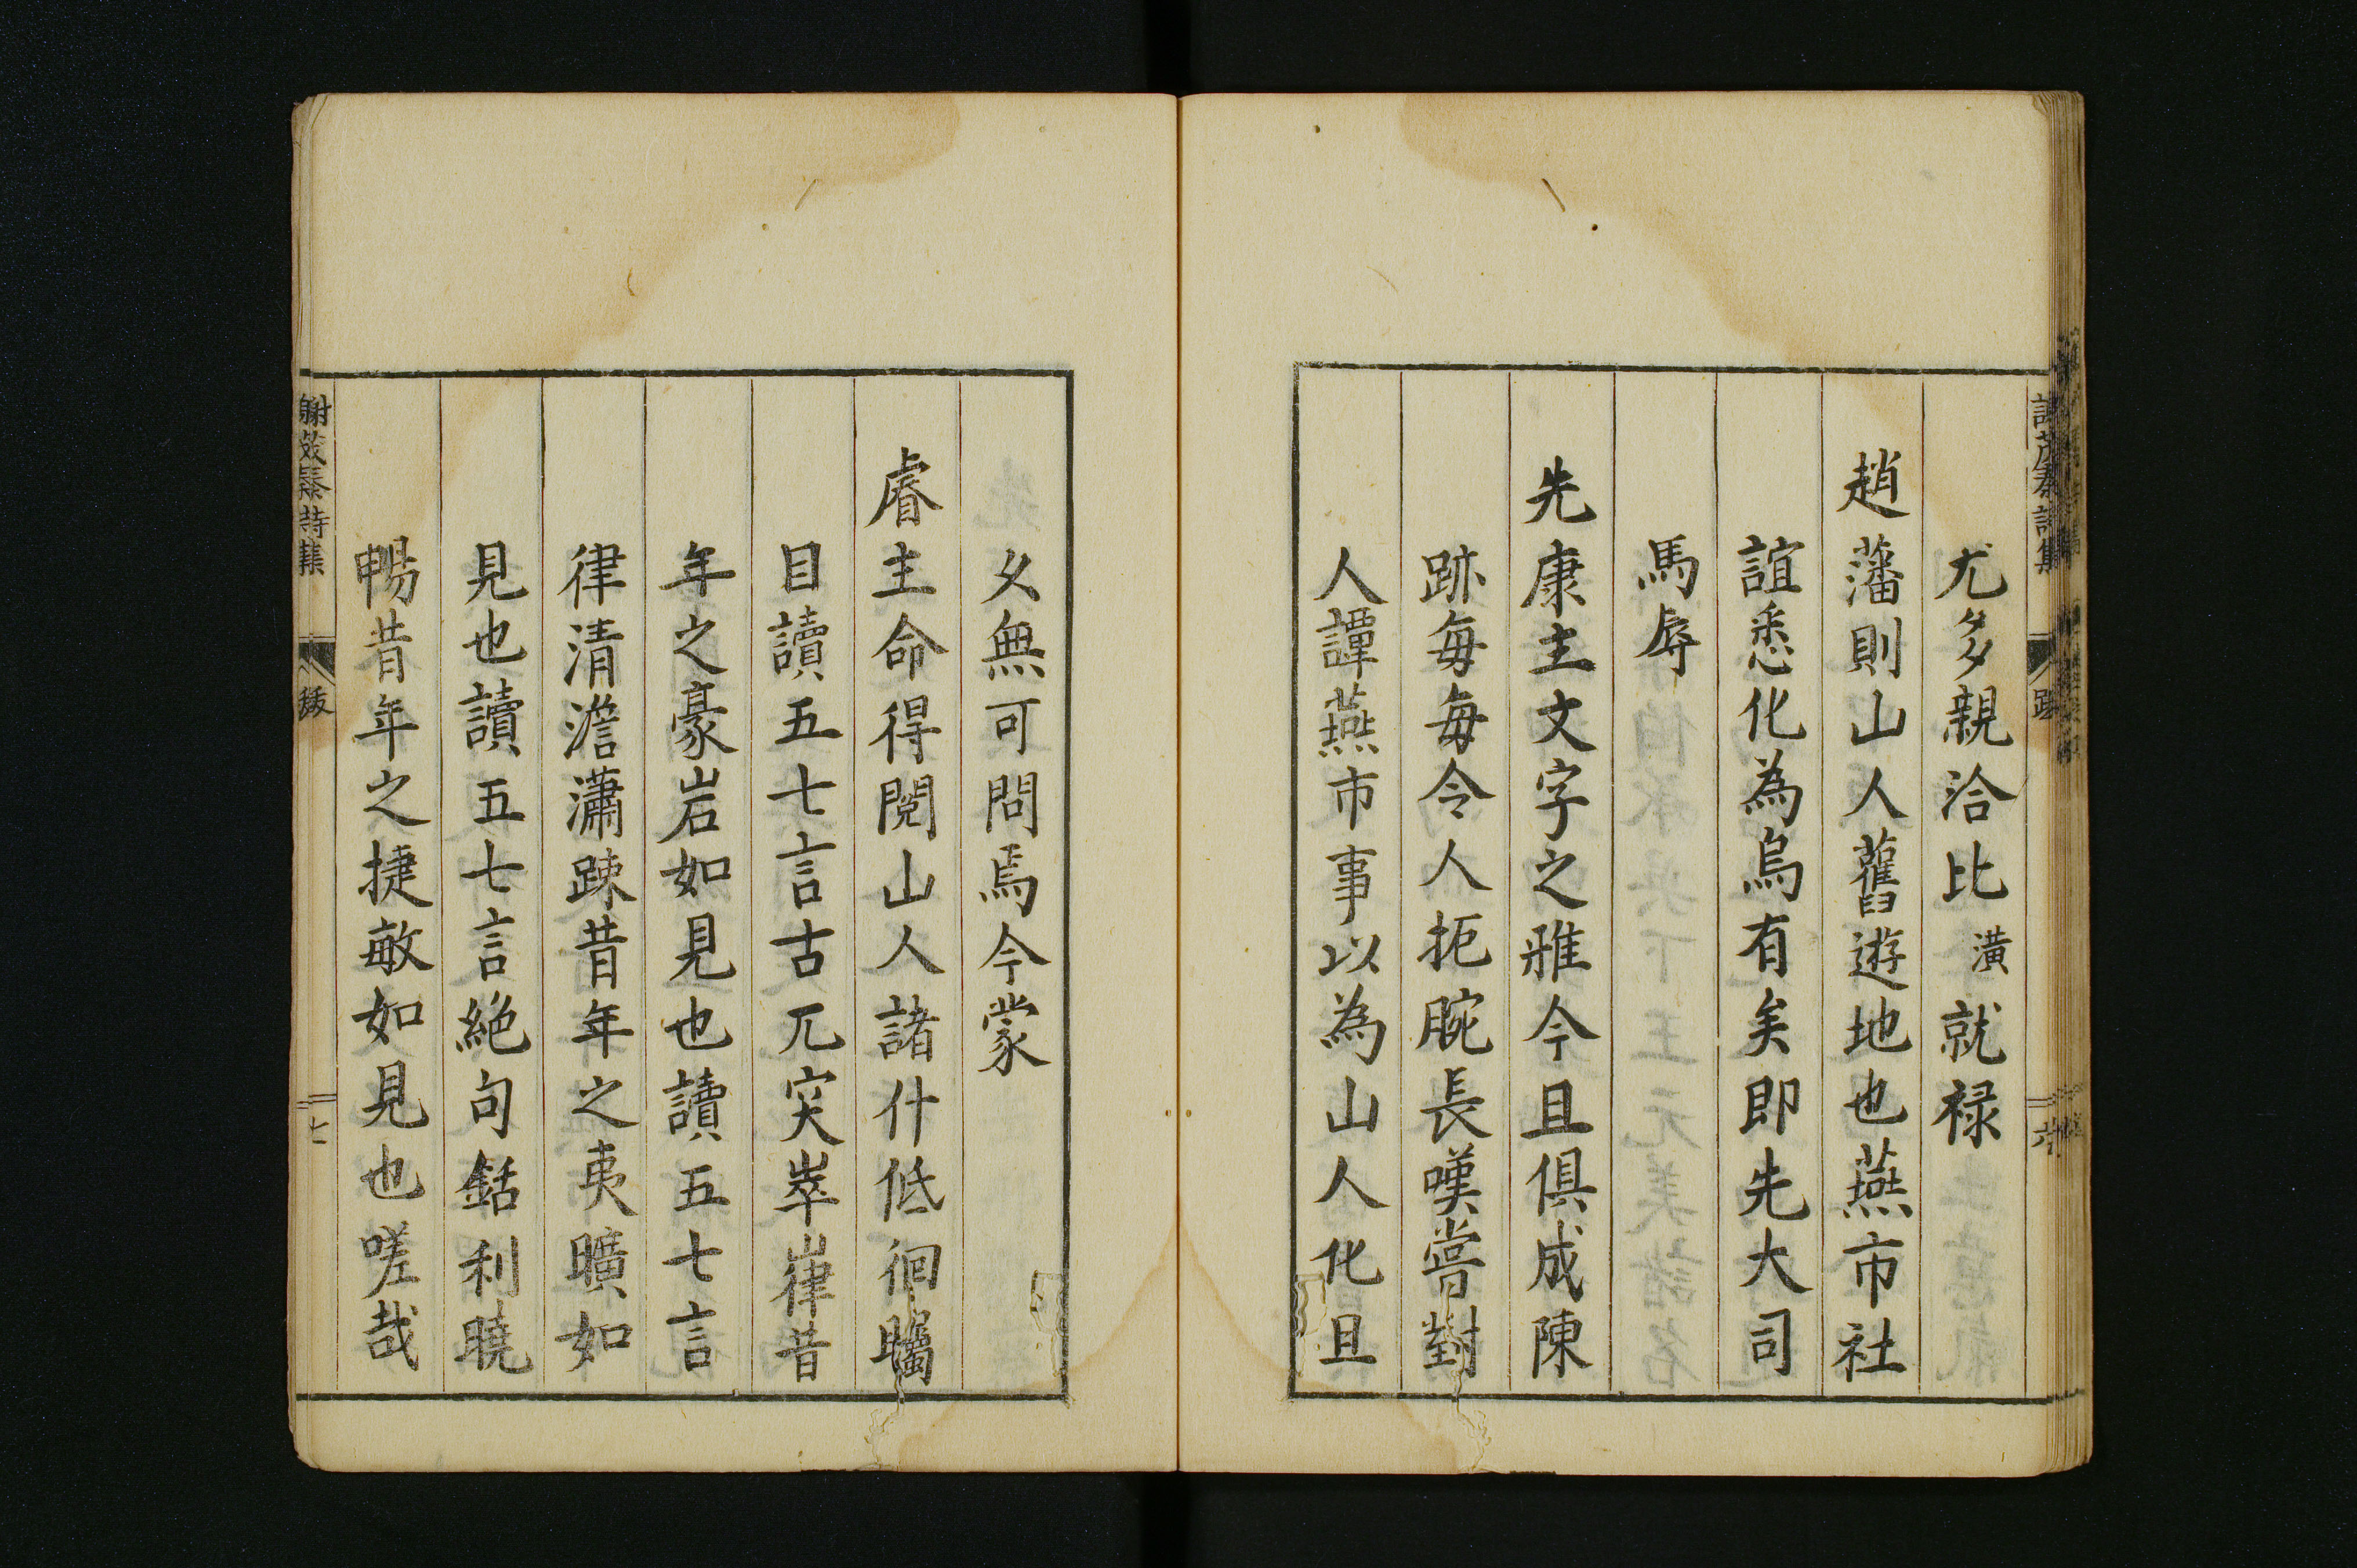 謝茂秦詩集
跋
六
尤多親洽比潢就祿
趙藩則山人舊遊地也燕市社
誼悉化為烏有矣即先大司
馬辱
先康主文字之雅今且俱成陳
跡每每令人扼腕長嘆嘗對
人譚燕市事以為山人化且
久無可問焉今蒙
睿主命得閱山人諸什低徊矚
目讀五七言古兀突崒嵂昔
年之豪岩如見也讀五七言
律清澹瀟踈昔年之夷曠如
見也讀五七言絕句銛利曉
暢昔年之捷敏如見也嗟哉
謝茂秦詩集
跋
七